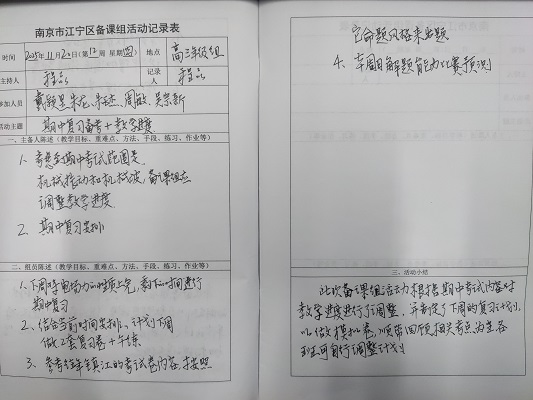 南京市江宁区备课组活动记录表
时间 2025年11月20日(第12周 星期四) 地点 高三年级组
主持人 记录人
参加人员 朱龙、周敏、吴宗新
活动主题 期中复习备考+教学进度
一、主备人陈述（教学目标、重难点、方法、手段、练习、作业等）
1、考虑到期中考试范围是
机械振动和机械波，备课组应
调整教学进度
2、期中复习安排
二、组员陈述（教学目标、重难点、方法、手段、练习、作业等）
1、下周将电场力的性质上完，剩下的时间进行
期中复习
2、结合当前时间安排，计划下周
做2套复习卷+午练
3、参考往年镇江的考试卷内容，按照
它命题风格来出题
4、本周日解题能力比赛预测
三、活动小结
此次备课组活动根据期中考试内容对
教学进度进行了调整，并制定了下周的复习计划，
以做模拟卷，顺带回顾相关考点为主各
班可自行调整计划